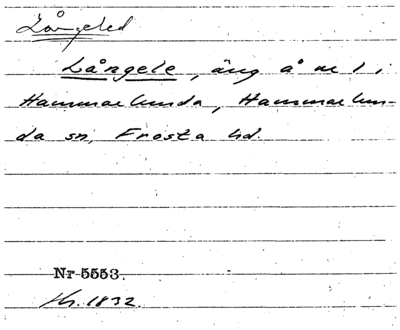 Långeled
Långele, äng å nr 1 i
Hammarlunda, Hammarlun-
da sn, Frosta hd.
Nr 5553.
1832.